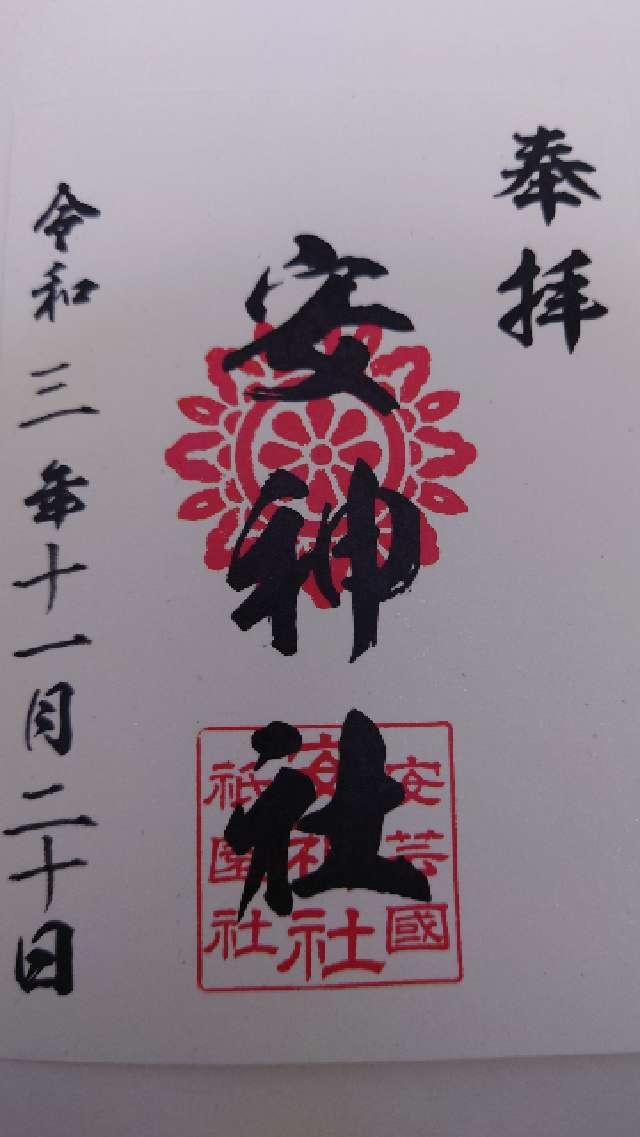 奉拝
安神社
安芸國
安神社
祇園社
令和三年十一月二十日